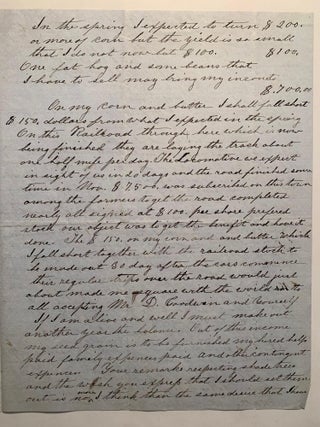 In the spring I expected to turn $200.
or more of corn but the yield is so small
that I do not now but $100. $100,
One fat hog and some beans that
I have to sell may bring my income
$700,00
On my corn and butter I shall fall short
$150, dollars from what I expected in the spring
On this Railroad through here which is now
being finished they are laying the track about
one half mile per day. The locomotive we expect
in sight of us in 20 days and the road finished some
time in Nov. $7500, was subscribed in this town
among the farmers to get the road completed
nearly all signed at $100, per share
stock our object was to get the benefit and have it
done. The $150, on my corn and butter which
I fall short together with the railroad stock to
be made out 30 day after the cars commence
their regular trips over the road would just
about made me square with the world
all accepting Mr. D. Goodwin and yourself
If I am alive and well I must make out
another year the balance. Out of this income
my seed grain is to be furnished my hired help
paid family expences paid and other contingent
expences! Your remarks respecting shade trees
and the wish you express that I should set them
out is no more I think than the same desire that I have